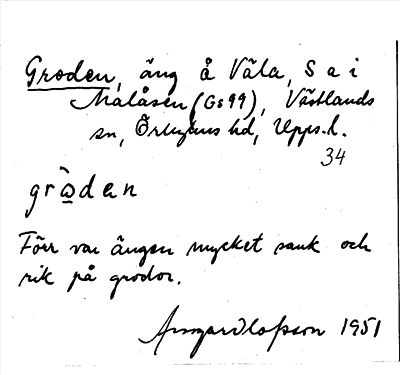 Groden, äng å Väla, S a i
Målåsen (Gs 99), Västlands
sn, Örbyhus hd, Upps. l.
34
grὼden
Förr var ängen mycket sank och
rik på grodor.
Olofsson 1951